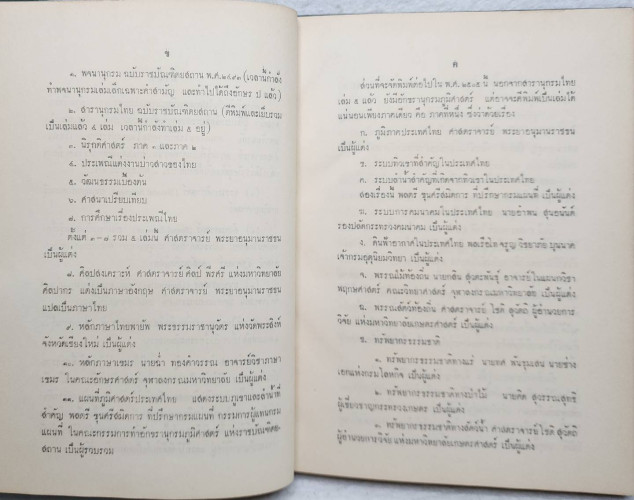 ข
๑. พจนานุกรม ฉบับราชบัณฑิตยสถาน พ.ศ.๒๔๙๓ (เวลานี้กำลัง
ทำพจนานุกรมเล่มเล็กเฉพาะคำสำคัญ และทำไปได้ถึงอักษร ป แล้ว)
๒. สารานุกรมไทย ฉบับราชบัณฑิตยสถาน (ตีพิมพ์และเย็บรวม
เป็นเล่มแล้ว ๔ เล่ม เวลานี้กำลังทำเล่ม ๕ อยู่)
๓. นิรุกติศาสตร์ ภาค ๑ และภาค ๒
๔. ประเพณีแต่งงานบ่าวสาวของไทย
๕. วัฒนธรรมเบื้องต้น
๖. ศาสนาเปรียบเทียบ
๗. การศึกษาเรื่องประเพณีไทย
ตั้งแต่ ๓ - ๗ รวม ๕ เล่มนี้ ศาสตราจารย์ พระยาอนุมานราชธน
เป็นผู้แต่ง
๘. ศิลปสงเคราะห์ ศาสตราจารย์ ศิลป์ พีระศรี แห่งมหาวิทยาลัย
ศิลปากร แต่งเป็นภาษาอังกฤษ ศาสตราจารย์ พระยาอนุมานราชธน
แปลเป็นภาษาไทย
๙. หลักภาษาไทยพายัพ พระธรรมราชานุวัตร แห่งวัดพระสิงห์
จังหวัดเชียงใหม่ เป็นผู้แต่ง
๑๐. หลักภาษาเขมร นายฉ่ำ ทองคำวรรณ อาจารย์วิชาภาษา
เขมร ในคณะอักษรศาสตร์ จุฬาลงกรณมหาวิทยาลัย เป็นผู้แต่ง
๑๑. แผนที่ภูมิศาสตร์ประเทศไทย แสดงระบบภูเขาและลำน้ำที่
สำคัญ พลตรี ขุนศรีสมิตการ ที่ปรึกษากรมแผนที่ กรรมการผู้แทนกรม
แผนที่ ในคณะกรรมการทำอักขรานุกรมภูมิศาสตร์ แห่งราชบัณฑิตย-
สถาน เป็นผู้รวบรวม
ค
ส่วนที่จะจัดพิมพ์ต่อไปใน พ.ศ. นี้ นอกจากสารานุกรมไทย
เล่ม ๕ แล้ว ยังมีอักขรานุกรมภูมิศาสตร์ แต่อาจจะตีพิมพ์เป็นเล่มได้
แน่นอนเพียงภาคเดียว คือ ภาคที่หนึ่ง ซึ่งว่าด้วยเรื่อง
ก. ภูมิภาคประเทศไทย ศาสตราจารย์ พระยาอนุมานราชธน
เป็นผู้แต่ง
ข. ระบบทิวเขาที่สำคัญในประเทศไทย
ค. ระบบลำน้ำสำคัญที่เกิดจากทิวเขาในประเทศไทย
สองเรื่องนี้ พลตรี ขุนศรีสมิตการ ที่ปรึกษากรมแผนที่ เป็นผู้แต่ง
ฆ. ระบบการคมนาคมในประเทศไทย นายอำพน สุนอนันต์
รองปลัดกระทรวงคมนาคม เป็นผู้แต่ง
ง. ดินฟ้าอากาศในประเทศไทย พลเรือโท จรูญ วิชยาภัย บุนนาค
เจ้ากรมอุตุนิยมวิทยา เป็นผู้แต่ง
จ. พรรณไม้ท้องถิ่น นายกสิน สุวตะพันธุ์ อาจารย์ในแผนกวิชา
พฤกษศาสตร์ คณะวิทยาศาสตร์ จุฬาลงกรณมหาวิทยาลัย เป็นผู้แต่ง
ฉ. พรรณสัตว์ท้องถิ่น ศาสตราจารย์ โชติ สุวัตถิ ผู้อำนวยการ
วิจัย แห่งมหาวิทยาลัยเกษตรศาสตร์ เป็นผู้แต่ง
ช. ทรัพยากรธรรมชาติ
๑. ทรัพยากรธรรมชาติทางแร่ นาย พันธุมเสน นายช่าง
เอกแห่งกรมโลหกิจ เป็นผู้แต่ง
๒. ทรัพยากรธรรมชาติทางป่าไม้ นายคิด สุวรรณสุทธิ
ผู้เชี่ยวชาญกระทรวงเกษตร เป็นผู้แต่ง
๓. ทรัพยากรธรรมชาติทางสัตว์น้ำ ศาสตราจารย์ โชติ สุวัตถิ
ผู้อำนวยการวิจัย แห่งมหาวิทยาลัยเกษตรศาสตร์ เป็นผู้แต่ง